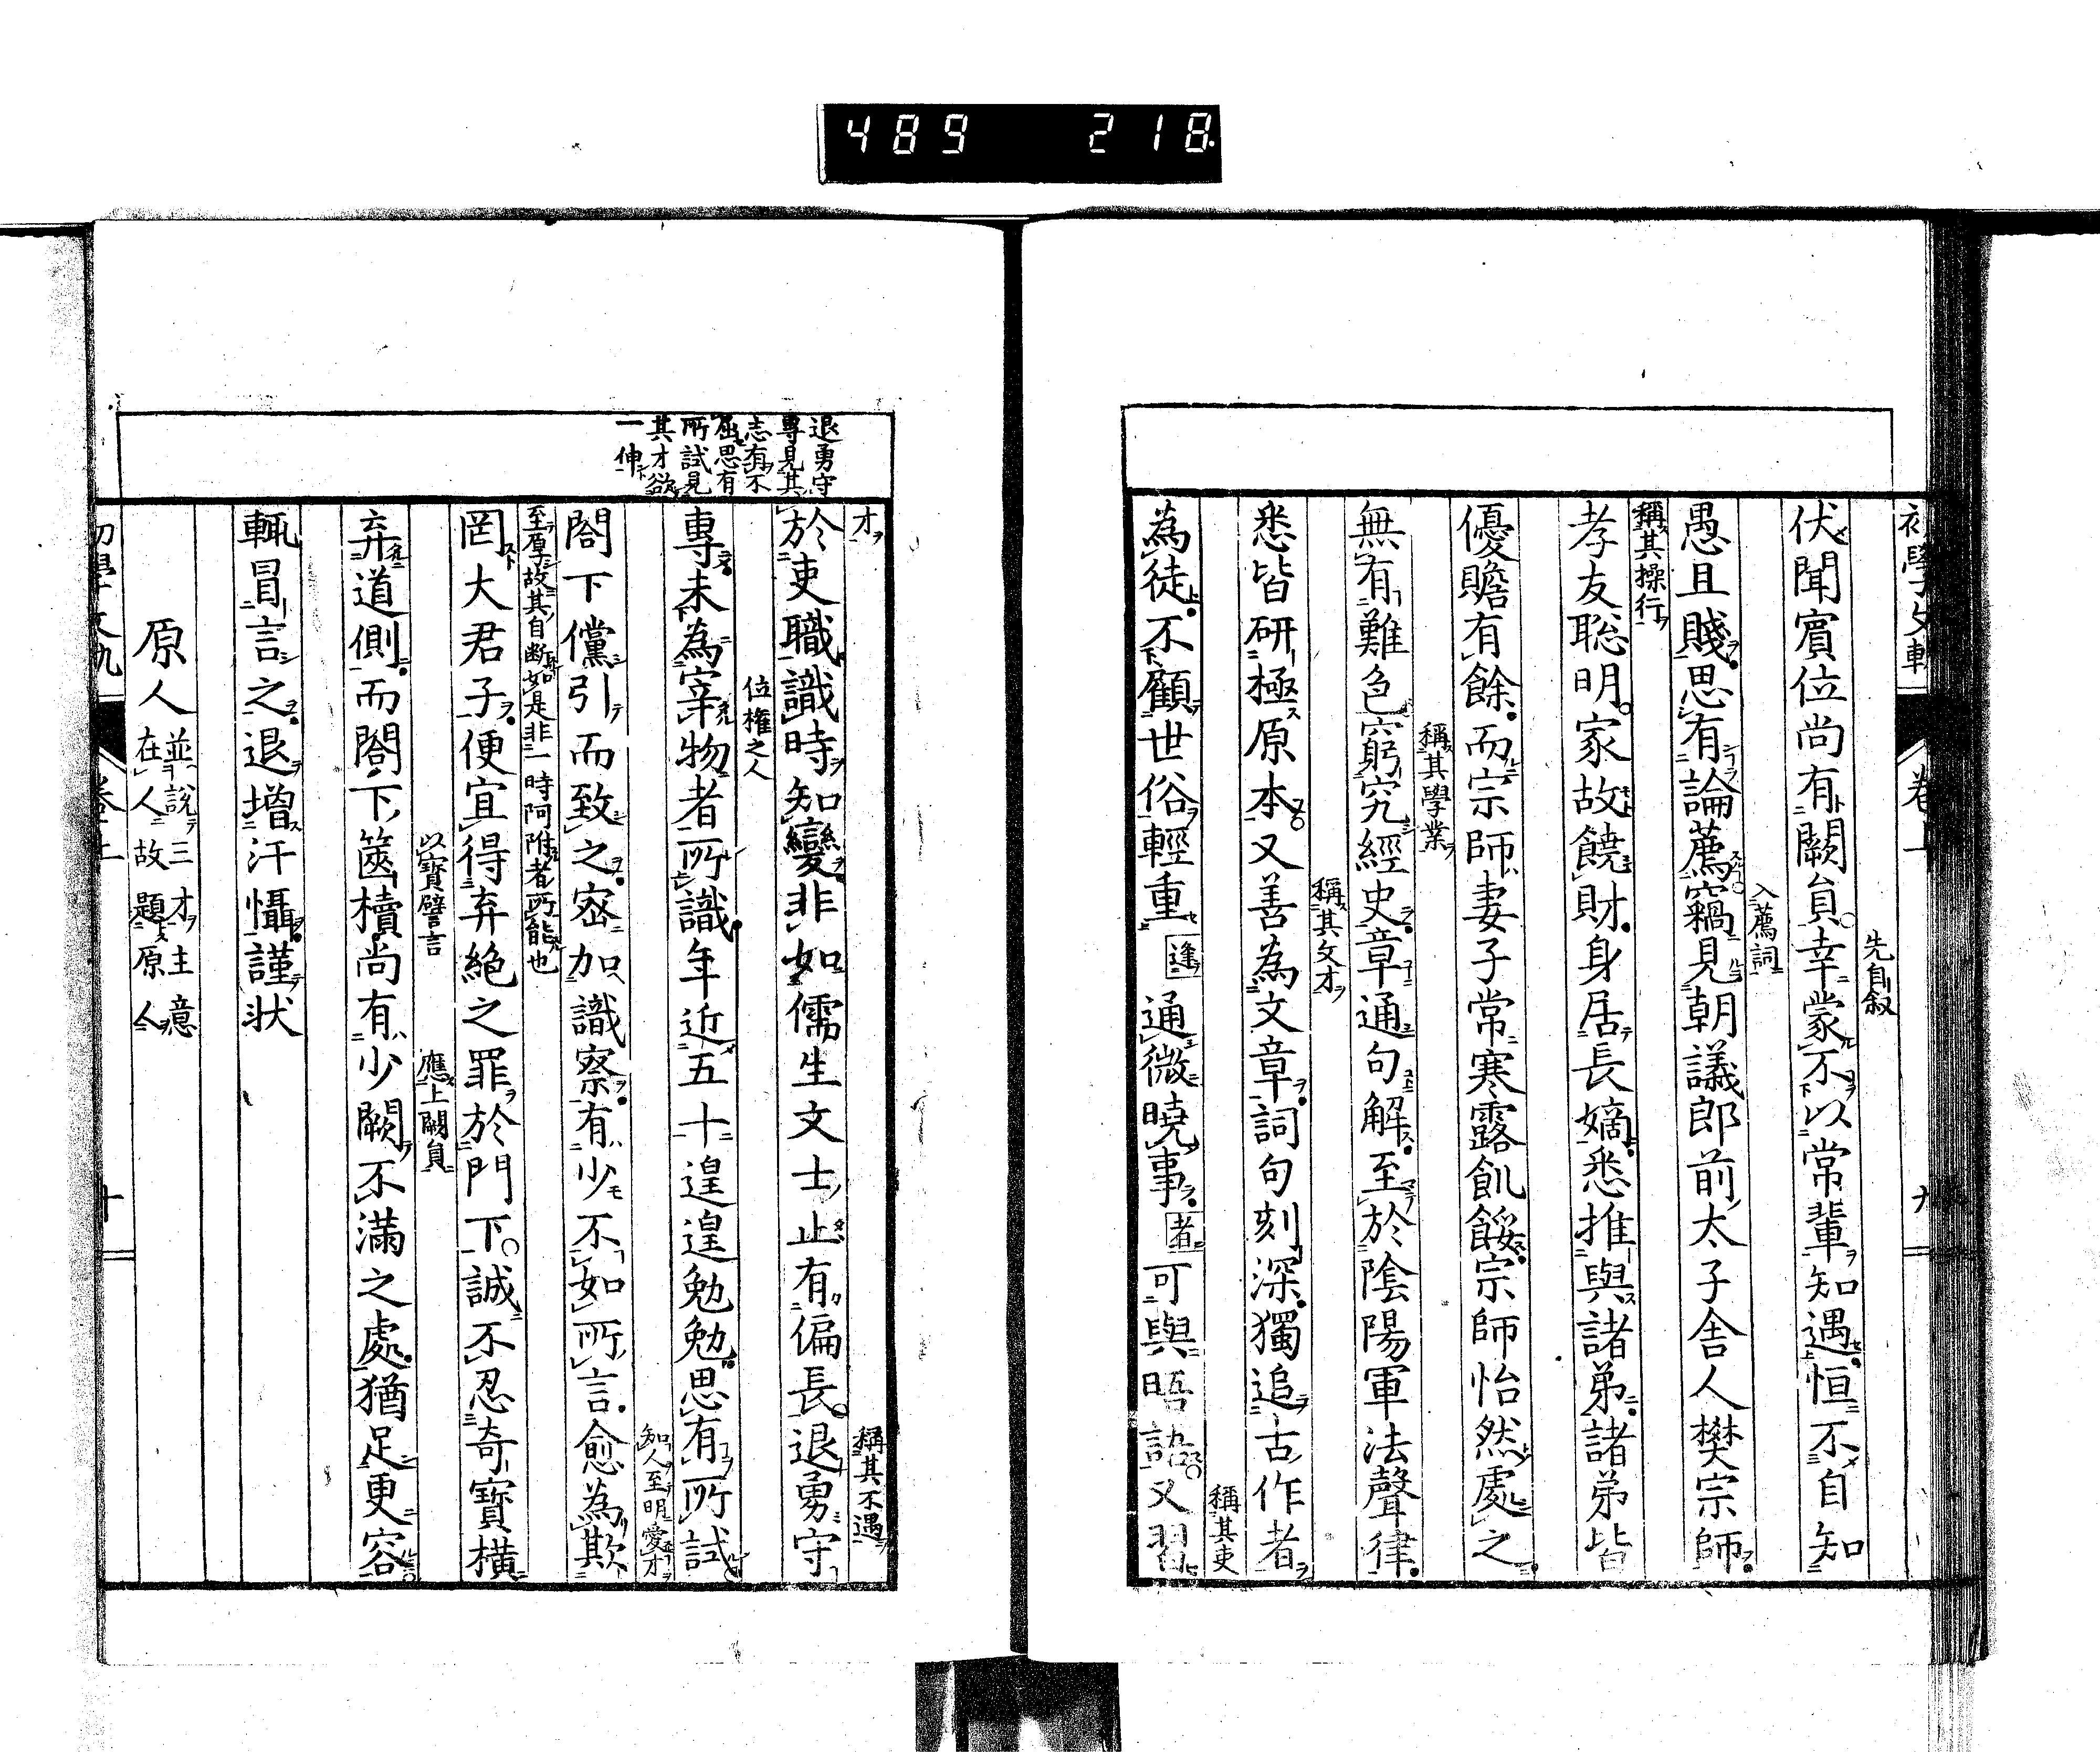 489 218
卷一
九
先自叙
伏聞賓位尚有闕員幸蒙不以常輩知遇恒不自知
入薦詞
愚且賤思有論薦竊見朝議郎前太子舍人樊宗師
稱其操行
孝友聡明家故饒財身居長嫡悉推與諸弟諸弟皆
優贍有餘而宗師妻子常寒露飢餒宗師怡然處之
稱其學業
無有難色窮究經史章通句解至於陰陽軍法聲律
稱其文才
悉皆研極原本又善為文章詞句刻深獨追古作者
稱其吏
為徒不顧世俗輕重逢通微曉事者可與晤語又習
退勇守
專見其
志有不
屈思有
所試見
其才欲
一伸
才
稱其不遇
於吏職識時知變非如儒生文士止有偏長退勇守
位權之人
專未為宰物者所識年近五十遑遑勉勉思有所試
知人至明愛才
閤下儻引而致之密加識察有少不如所言愈為欺
至厚故其自断如是非一時阿附者所能也
罔大君子便宜得弃絶之罪於門下誠不忍奇寶橫
以寶譬言
應上闕員
弃道側而閤下篋櫝尚有少闕不滿之處猶足更容
輙冒言之退增汗懾謹状
原人
並說三才主意
在人故題原人